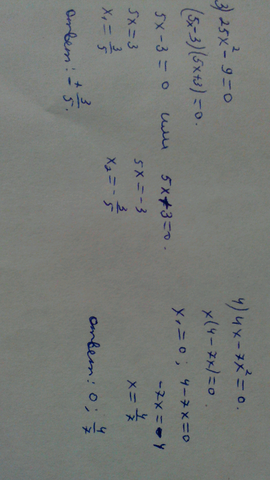 3) 25x² - 9 = 0
(5x-3)(5x+3)=0.
5x-3=0 или 5x+3=0.
5x=3 5x=-3
x₁=3/5 x₂=-3/5
ответ: ±3/5.
4) 4x-7x²=0.
x(4-7x)=0.
x₁=0; 4-7x=0
-7x=-4
x=4/7
ответ: 0; 4/7